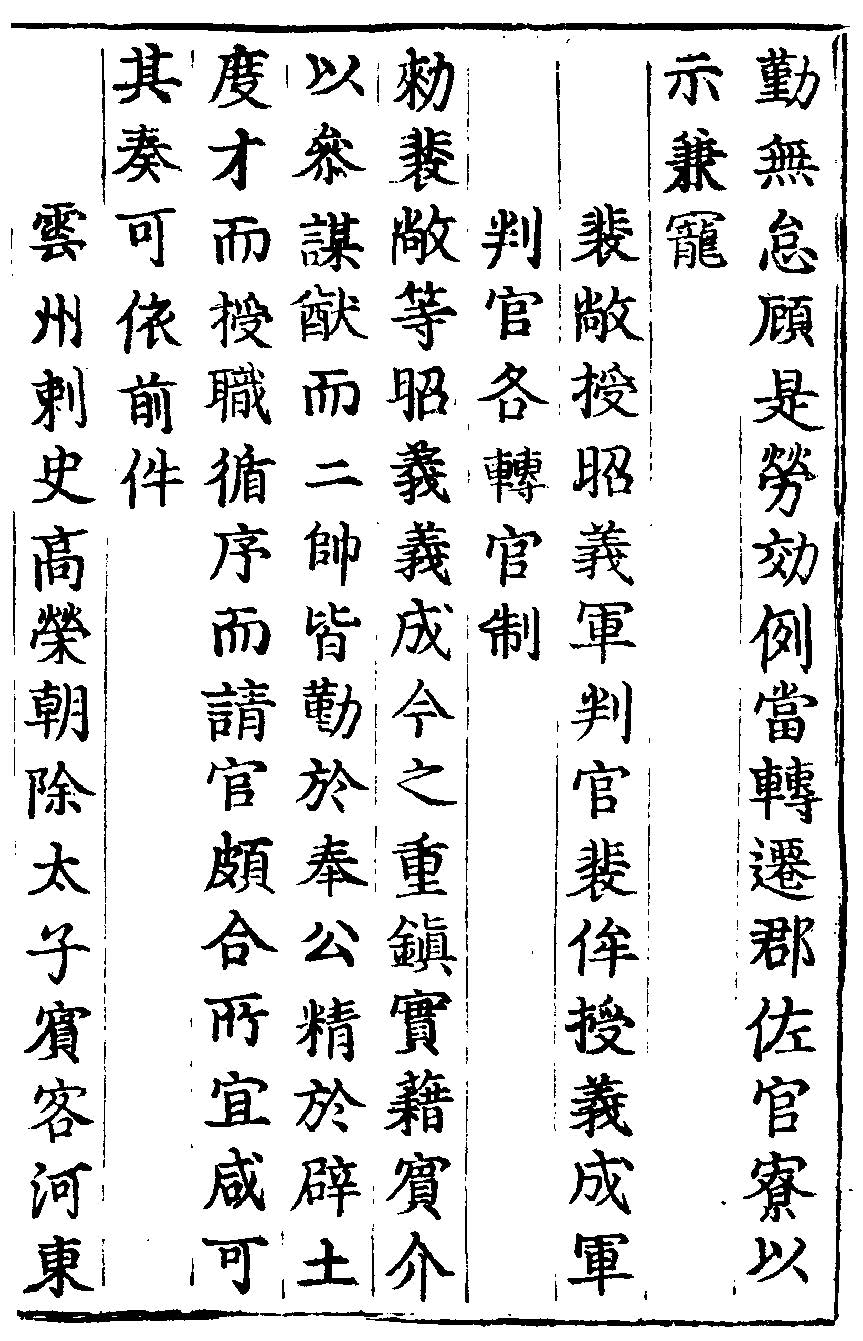 勤無怠顧是勞効例當轉遷郡佐官寮以
示兼寵
裴敞授昭義軍判官裴侔授義成軍
判官各轉官制
勑裴敞等昭義義成今之重鎮實藉賓介
以叅謀猷而二帥皆勤於奉公精於辟士
度才而授職循序而請官頗合所宜咸可
其奏可依前件
雲州刺史高榮朝除太子賓客河東